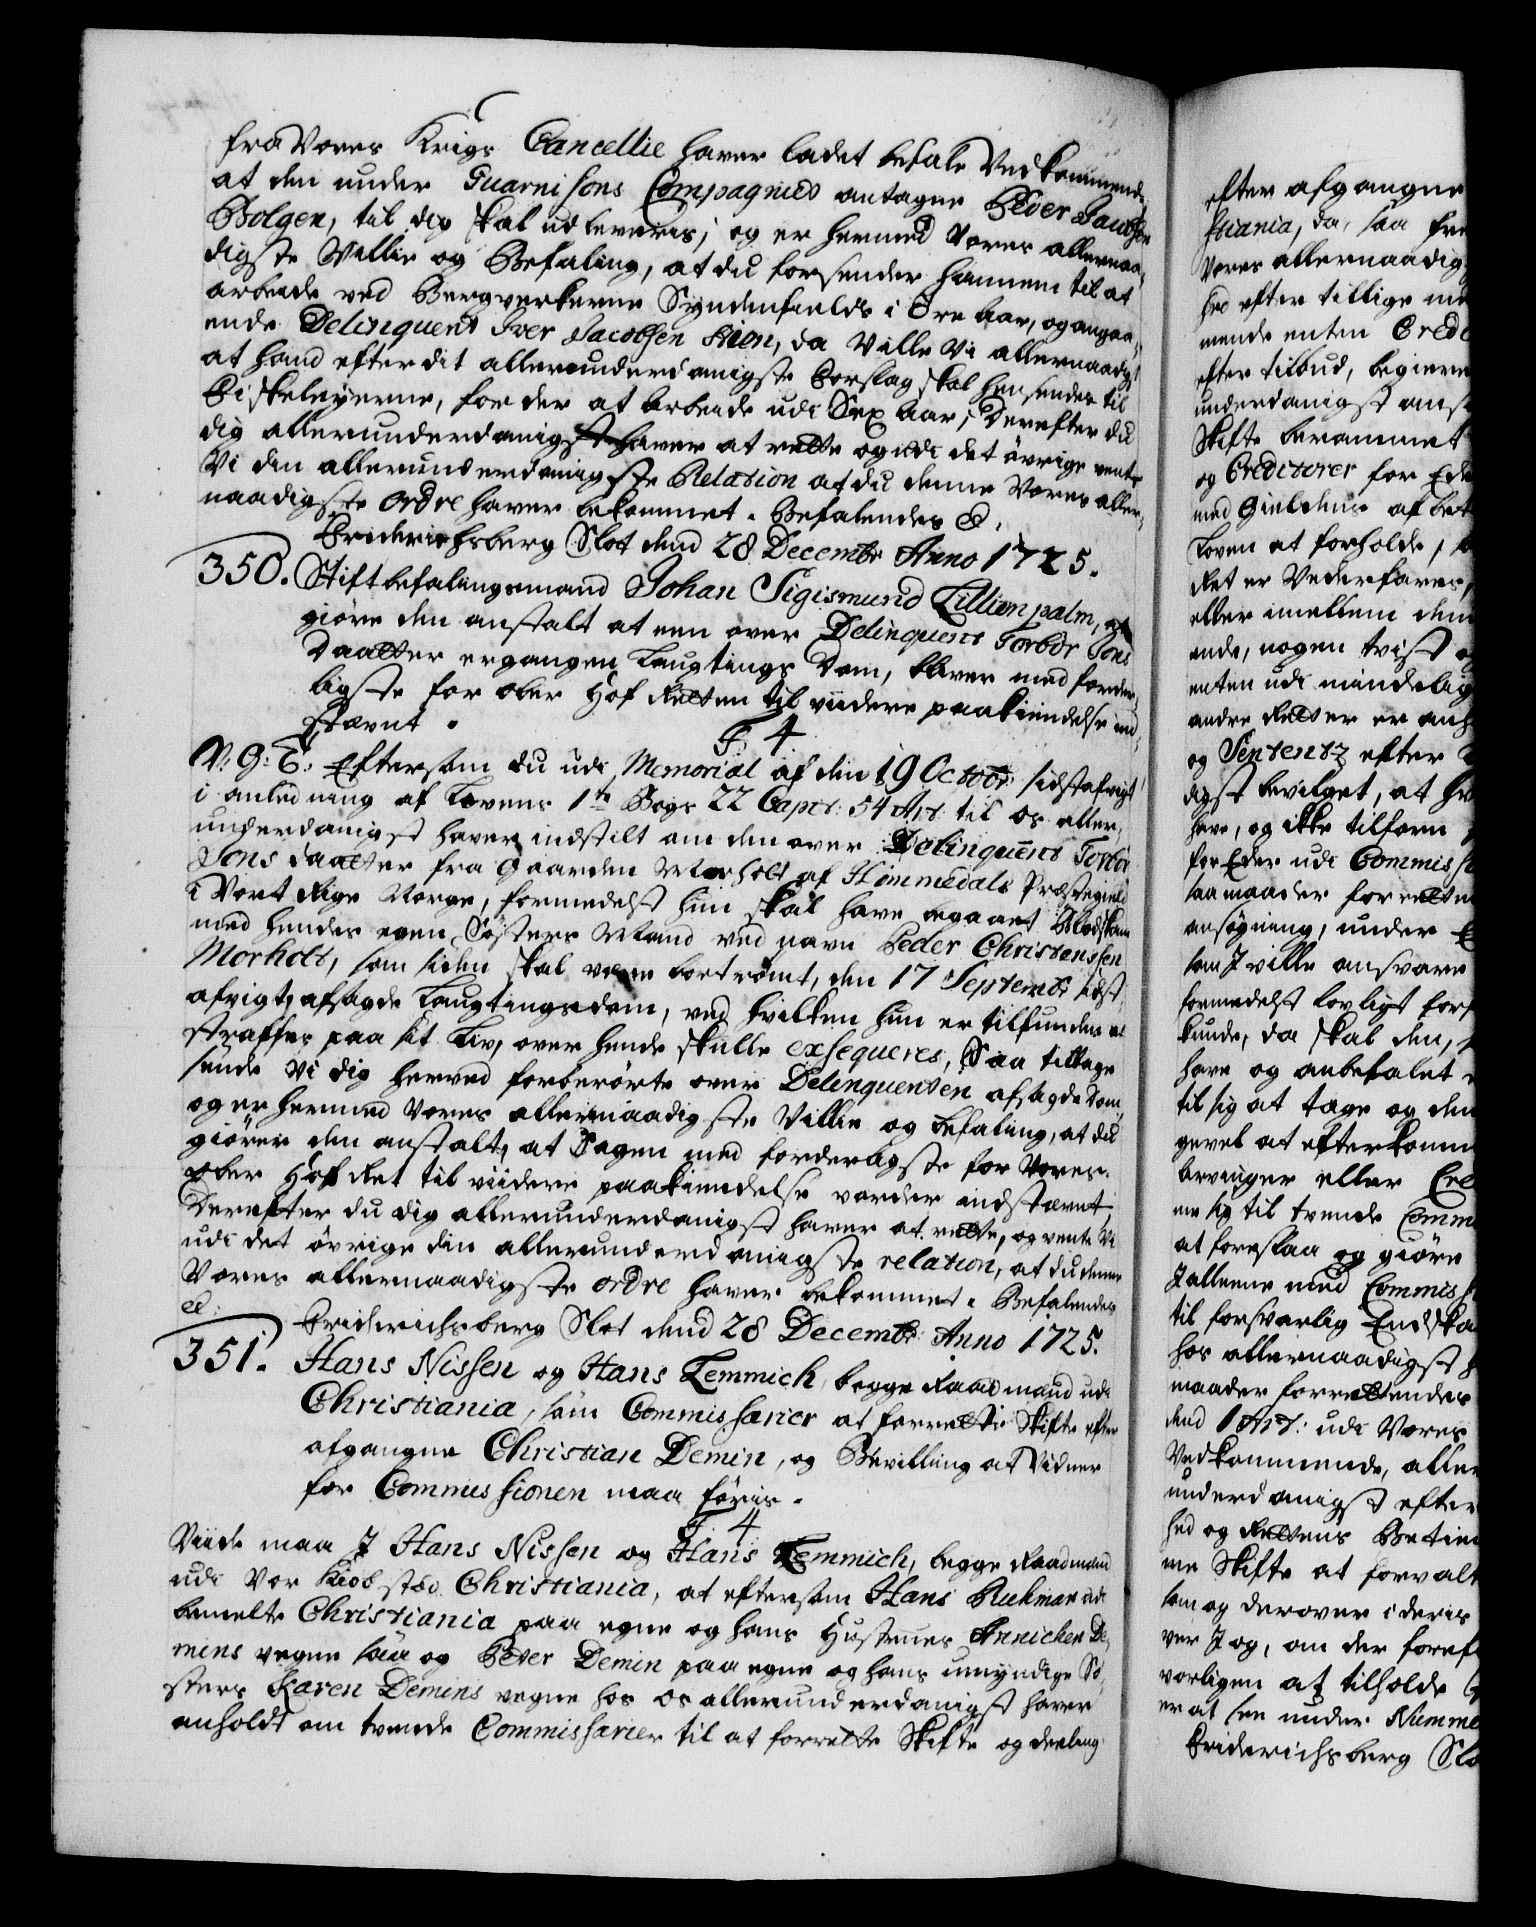 fra Vores Krigs Cancellie haver ladet befale Vedkommend-
at den under Guarnisons Compagniet antagne Peder Jacobsen
Bolgen, til dig skal udleveris; og er hermed Vores allernaa-
digste Villie og Befaling, at du forsender hannem til at
arbeide ved Bergverkerne Syndenfields i Tre Aar, og angaa-
ende Delinquent Iver Jacobsen Hion, da Ville Vi allernaadigst
at hand efter dit allerunderdanigste Forslag skal hensendes til
Fiskeleyerne, for der at arbeide udi Sex Aar; Derefter du
dig allerunderdanigst haver at rette og udi det övrige vente
Vi din allerunderdanigste Relation at du denne Vores aller-
naadigste Ordre haver bekommet. Befalendes &.
Friderichsberg Slot dend 28 Decembr Anno 1725.
350. Stiftbefalingsmand Johan Sigismund Lillienpalm, at
giöre den anstalt at een over Delinquent Torbör Tons
Daatter ergangen Laugtings Dom, bliver med forder-
ligste for Ober Hof Retten til viidere paakiendelse ind-
stævnt.
F 4
V: G: T: Eftersom du udi Memorial af den 19 Octobr: sidstafvigt
i anledning af Lovens 1te Bogs 22 Capit: 54 Art: til os aller-
underdanigst haver indstilt om den over Delinquent Torbör
Tons daatter fra Gaarden Morholt af Hommedals Præstegield
i Vort Rige Norge, formedelst hun skal have begaaet Blodskam
med hendes egen Søsters Mand ved navn Peder Christenssen
Morholt, som siden skal være bortrömt, den 17 Septembr sidst
afvigt, afsagde Laugtingsdom, ved hvilken hun er tilfunden at
straffes paa sit Liv, over hende skulle exseqveres, Saa tilbage
sende Vi dig herved forberörte over Delinquenten afsagde Dom,
og er hermed Vores allernaadigste Villie og befaling, at du
giörer den anstalt, at Sagen med forderligste for Vores
Ober Hof Ret til viidere paakiendelse vorder indstævnt,
Derefter du dig allerunderdanigst haver at rette, og vente Vi
udi det övrige din allerunderdanigste relation, at du denne
Vores allernaadigste ordre haver bekommet. Befalendes
&:
Friderichsberg Slot dend 28 Decembr Anno 1725.
351. Hans Nissen og Hans Temmich, begge Raadmand udi
Christiania, som Commissarier at forrette Skifte efter
afgangne Christian Demin, og Bevilling at Vidner
for Commissionen maa föris.
F. 4
Viide maa I Hans Nissen og Hans Temmich, begge Raadmand
udi Vor Kiöbstæd Christiania, at eftersom Hans Ruhman udi
bemelte Christiania paa egne og hans Hustrues Annichen De-
mins vegne saa og Peter Demin paa egne og hans umyndige Sö-
sters Karen Demins vegne hos os allerunderdanigst haver
anholdt om tvende Commissarier til at forrette Skifte og deeling
efter afgangne
stiania, da, saa fre
Vores allernaadig
hed efter tillige me
mende enten Credi
efter tilbud, begiere
underdanigst anst
Skifte berammet
og Creditorer for Ede
med Gieldens afbet
Loven at forholde, sa
Ret er Vederfares,
eller imellem dem
ende, nogen tvist og
enten udi mindelig
andre Retter er anh
og Sententz efter
digst bevilget, at hv
have, og ikke tilforn
for Eder udi Commiss
saa maader forrette
ansögning, under
som I ville ansvare
formedelst lovligt Forf
kunde, da skal den,
have og anbefalet
til sig at tage og den
gevel at efterkomm
arvinger eller Cre
ere sig til tvende Comm
at foreslaa og giöre
I alleene med Commiss
til forsvarlig Endska
hos allernaadigst
maader forrettendes
dend 1 Art: udi Vores
Vedkommende, aller
underdanigst efter
hed og Rettens Betien
me Skifte at forvalt
som og derover i deris
ver I og, om der foref
vorligen at tilholde
er at see under Numme
Friderichsberg Slo